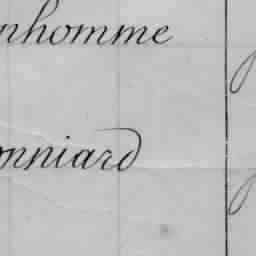 nhomme
onniard